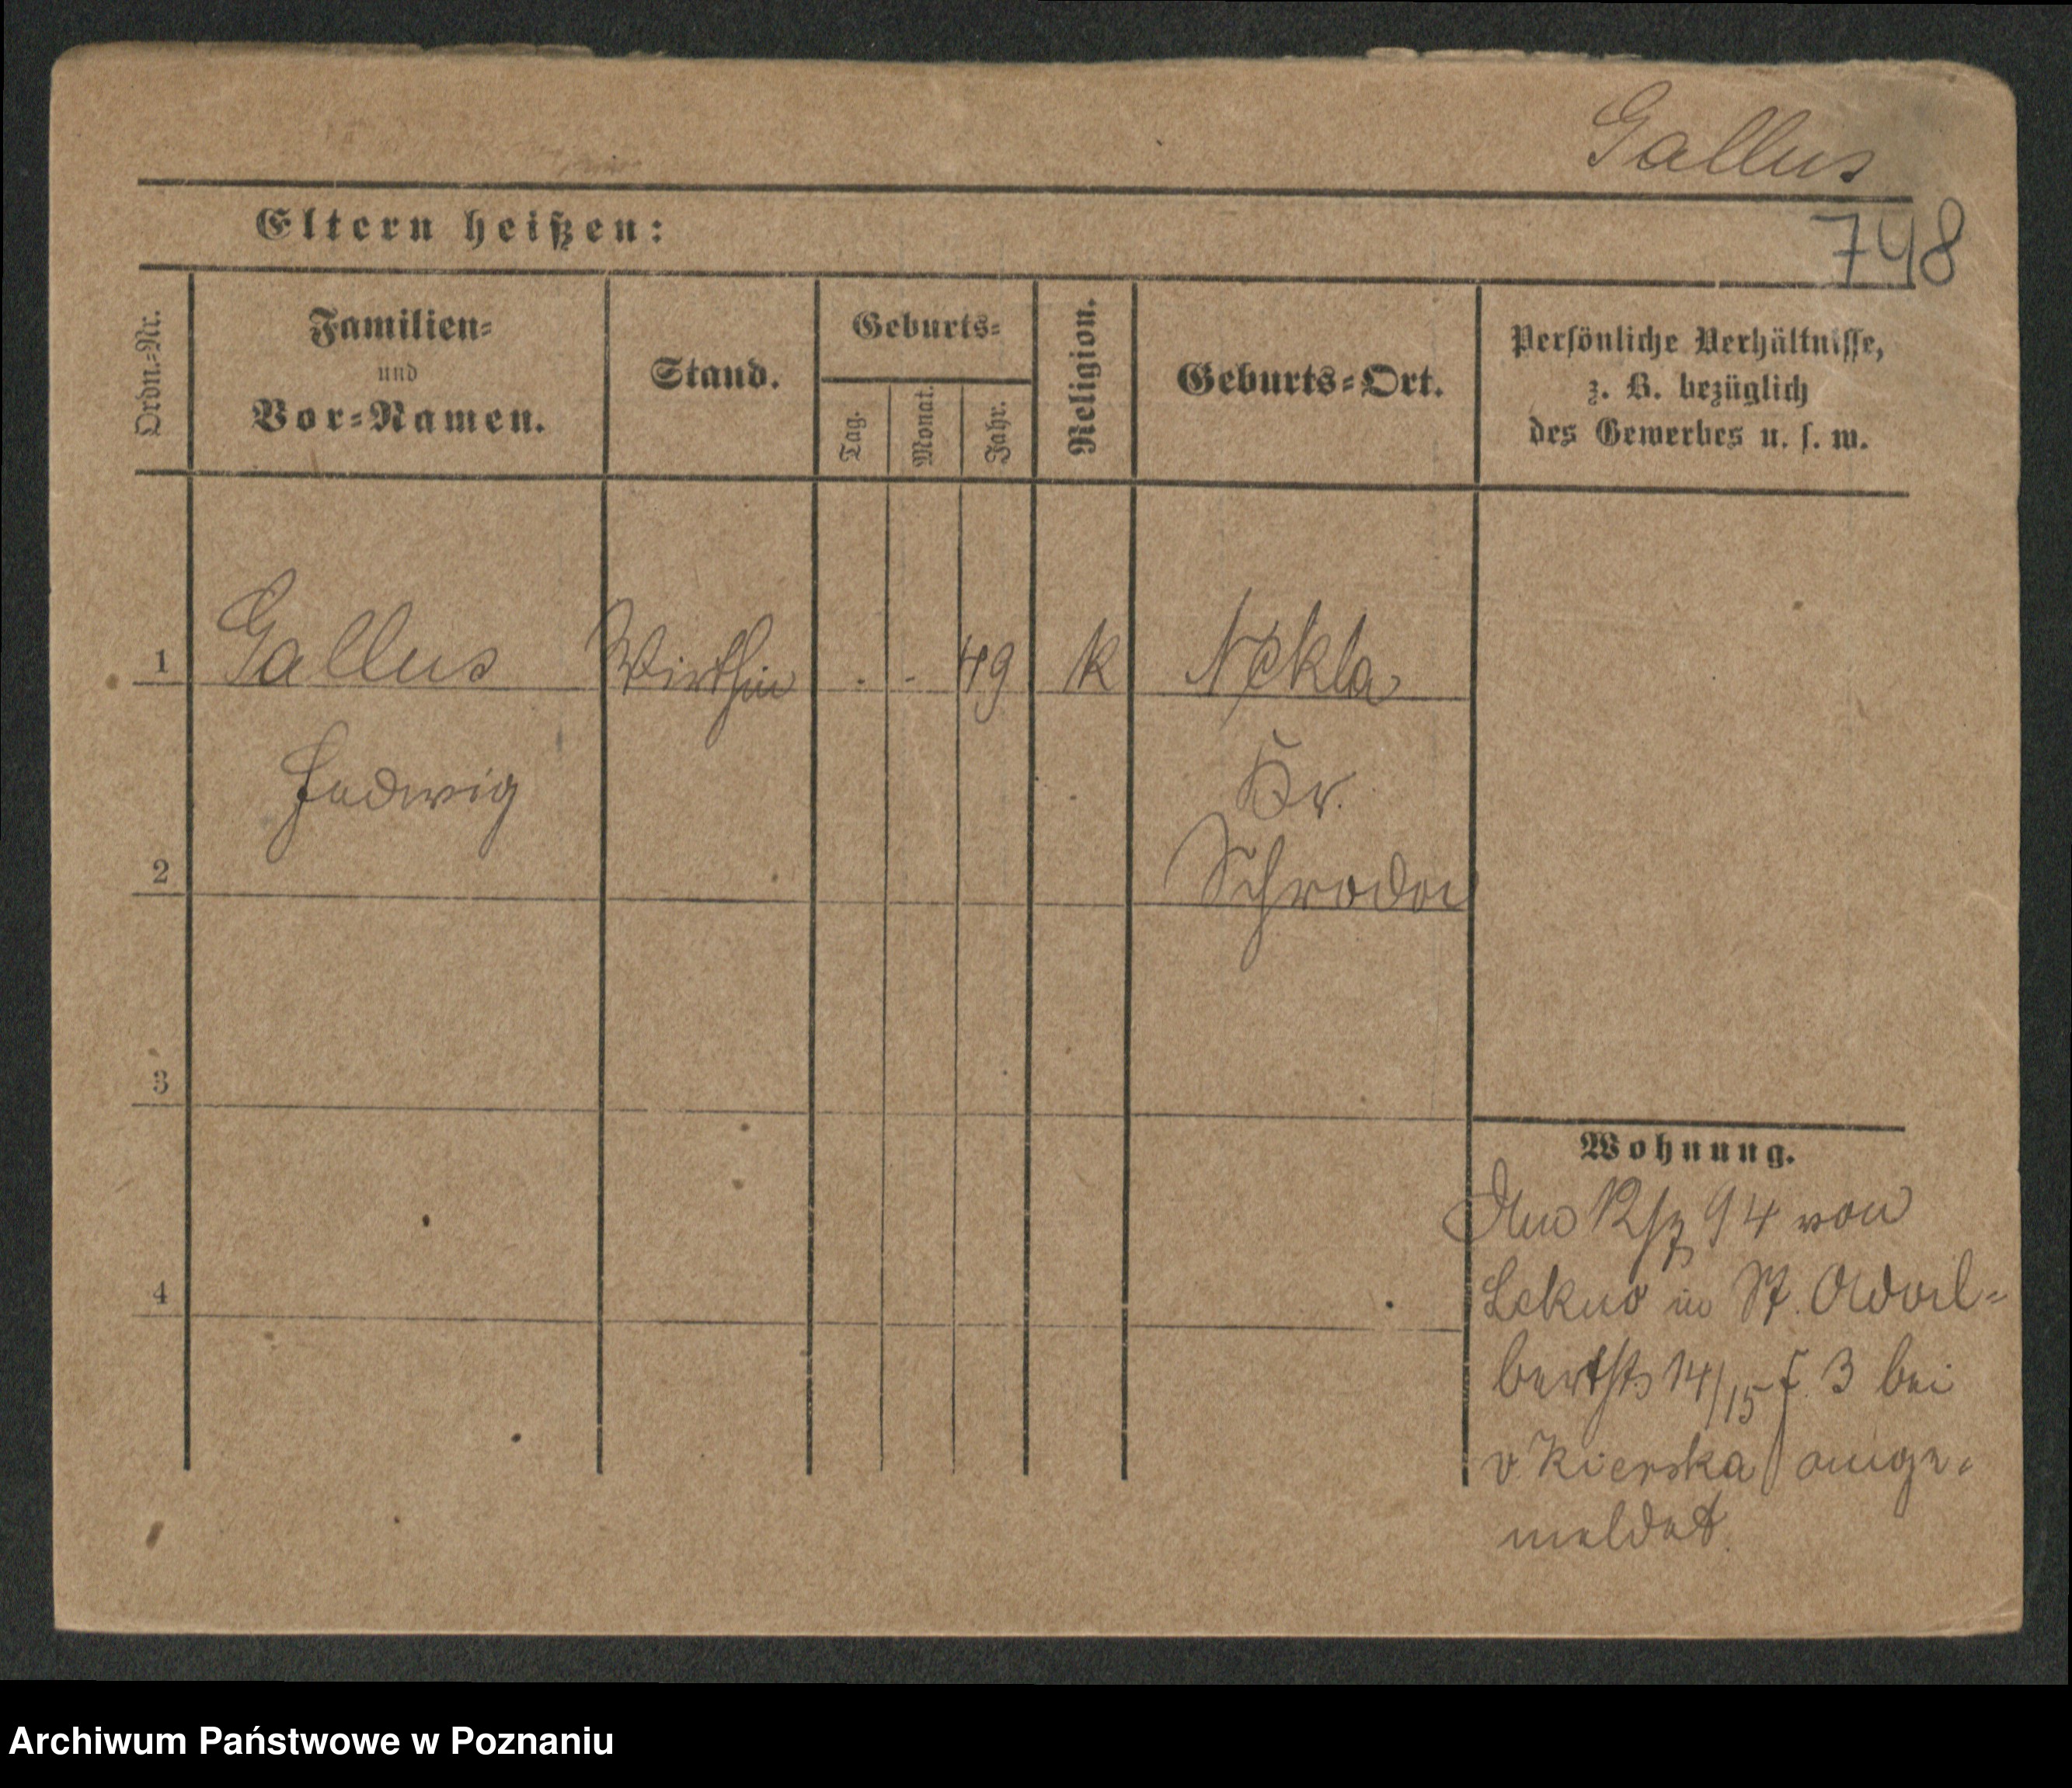 Gallus
748
Eltern heißen:
Ordn.-Nr.
Familien-
und
Vor-Namen.
Stand.
Geburts-
Tag.
Monat.
Jahr.
Religion.
Geburts-Ort.
Persönliche Verhältnisse,
z. B. bezüglich
des Gewerbes u. s. w.
1 Gallus Wirthin . . 49 k Nekla
Hedwig Kr.
2 Schroda
3
4
Wohnung.
12/7 94 von
Lekno in St. Adal-
bertstr 14/15 I. 3 bei
v. Kierska ange-
meldet.
Archiwum Państwowe w Poznaniu